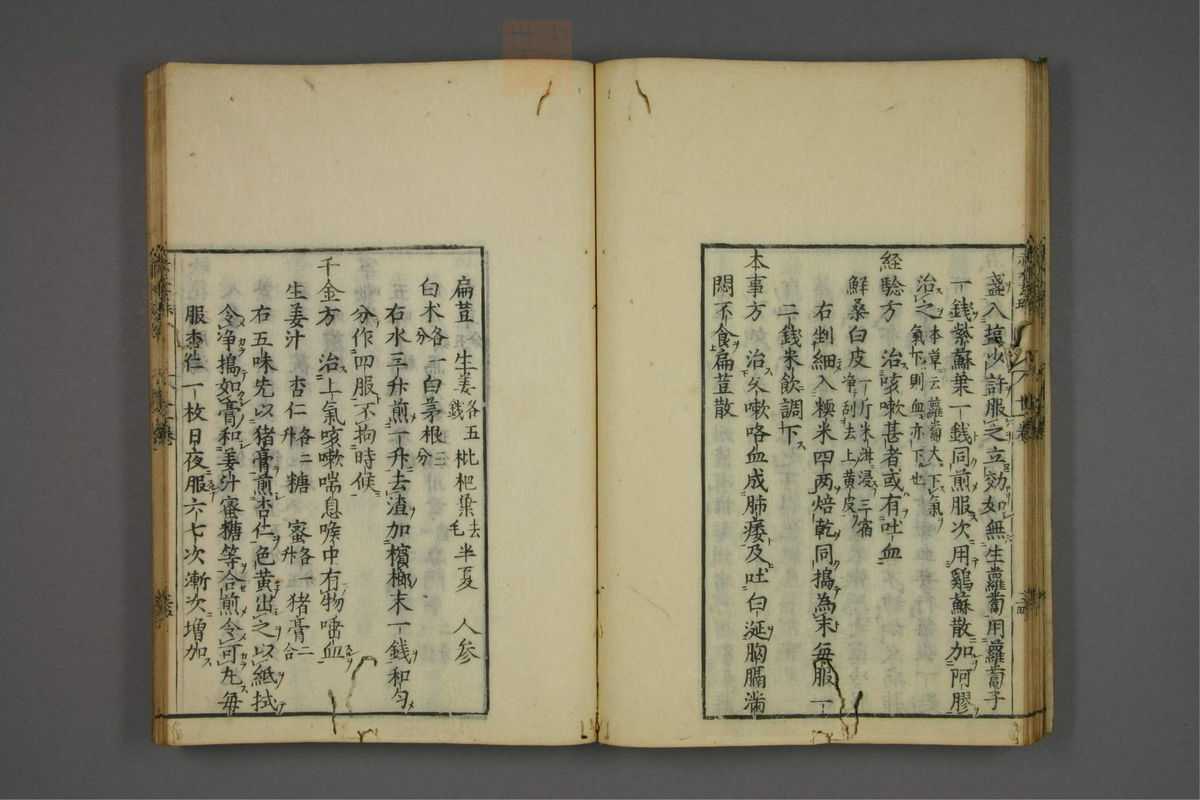 盞入塩少許服之立効如無生蘿蔔用蘿蔔子
一錢紫蘇葉一錢同煎服次用鷄蘇散加阿膠
治之本草云蘿蔔大下氣
氣下則血亦下也
経驗方　治咳嗽甚者或有吐血
鮮桑白皮一斤米泔浸三宿
淨刮去上黄皮
右剉細入糯米四两焙乾同搗為末毎服一
二錢米飲調下
本事方　治久嗽咯血成肺痿及吐白涎胸膈滿
悶不食扁荳散
扁荳　生姜各五錢　枇杷葉去毛　半夏　人参
白朮各一分　白茅根三分
右水三升煎一升去渣加檳榔末一錢和匀
分作四服不拘時候
千金方　治上氣咳嗽喘息喉中有物唾血
生姜汁　杏仁各二升　糖　蜜各一升　猪膏二合
右五味先以猪膏煎杏仁色黄出之以紙拭
令浄搗如膏和姜汁蜜糖等合煎令可丸毎
服杏仁一枚日夜服六七次漸次増加